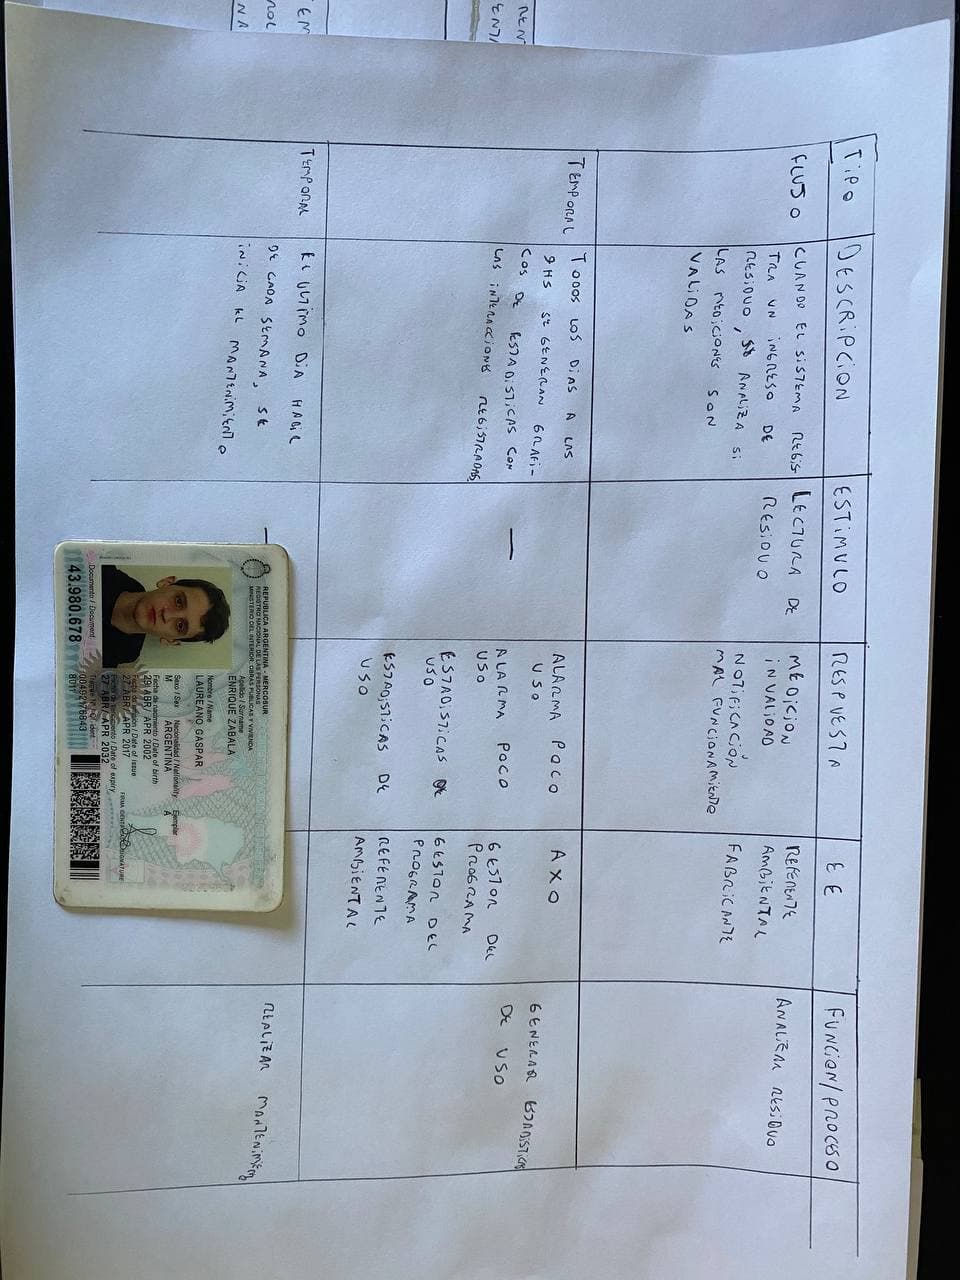 TIPO
DESCRIPCION
ESTIMULO
RESPUESTA
EE
FUNCION/PROCESO
FLUJO
CUANDO EL SISTEMA REGIS
TRA UN INGRESO DE
RESIDUO, SE ANALIZA SI
LAS MEDICIONES SON
VALIDAS
LECTURA DE
RESIDUO
MEDICION
INVALIDAD
NOTIFICACIÓN
MAL FUNCIONAMIENTO
REFERENTE
AMBIENTAL
FABRICANTE
ANALIZAR RESIDUO
TEMPORAL
TODOS LOS DIAS A LAS
9HS SE GENERAN GRAFI-
COS DE ESTADISTICAS CON
LAS INTERACCIONES REGISTRADAS
—
ALARMA POCO
USO
ALARMA POCO
USO
ESTADISTICAS DE
USO
ESTADISTICAS DE
USO
AXO
GESTOR DEL
PROGRAMA
GESTOR DEL
PROGRAMA
REFERENTE
AMBIENTAL
GENERAR ESTADISTICAS
DE USO
TEMPORAL
EL ULTIMO DIA HABIL
DE CADA SEMANA, SE
INICIA EL MANTENIMIENTO
—
REALIZAR MANTENIMIENTO
REPUBLICA ARGENTINA - MERCOSUR
REGISTRO NACIONAL DE LAS PERSONAS
MINISTERIO DEL INTERIOR, OBRAS PUBLICAS Y VIVIENDA
Apellido / Surname
ENRIQUE ZABALA
Nombre / Name
LAUREANO GASPAR
Sexo / Sex
Nacionalidad / Nationality
Ejemplar
M
ARGENTINA
A
Fecha de nacimiento / Date of birth
29 ABR/ APR 2002
Fecha de emisión / Date of issue
27 ABR/ APR 2017
Fecha de vencimiento / Date of expiry
27 ABR/ APR 2032
FIRMA IDENTIFICADO / SIGNATURE
Documento / Document
43.980.678